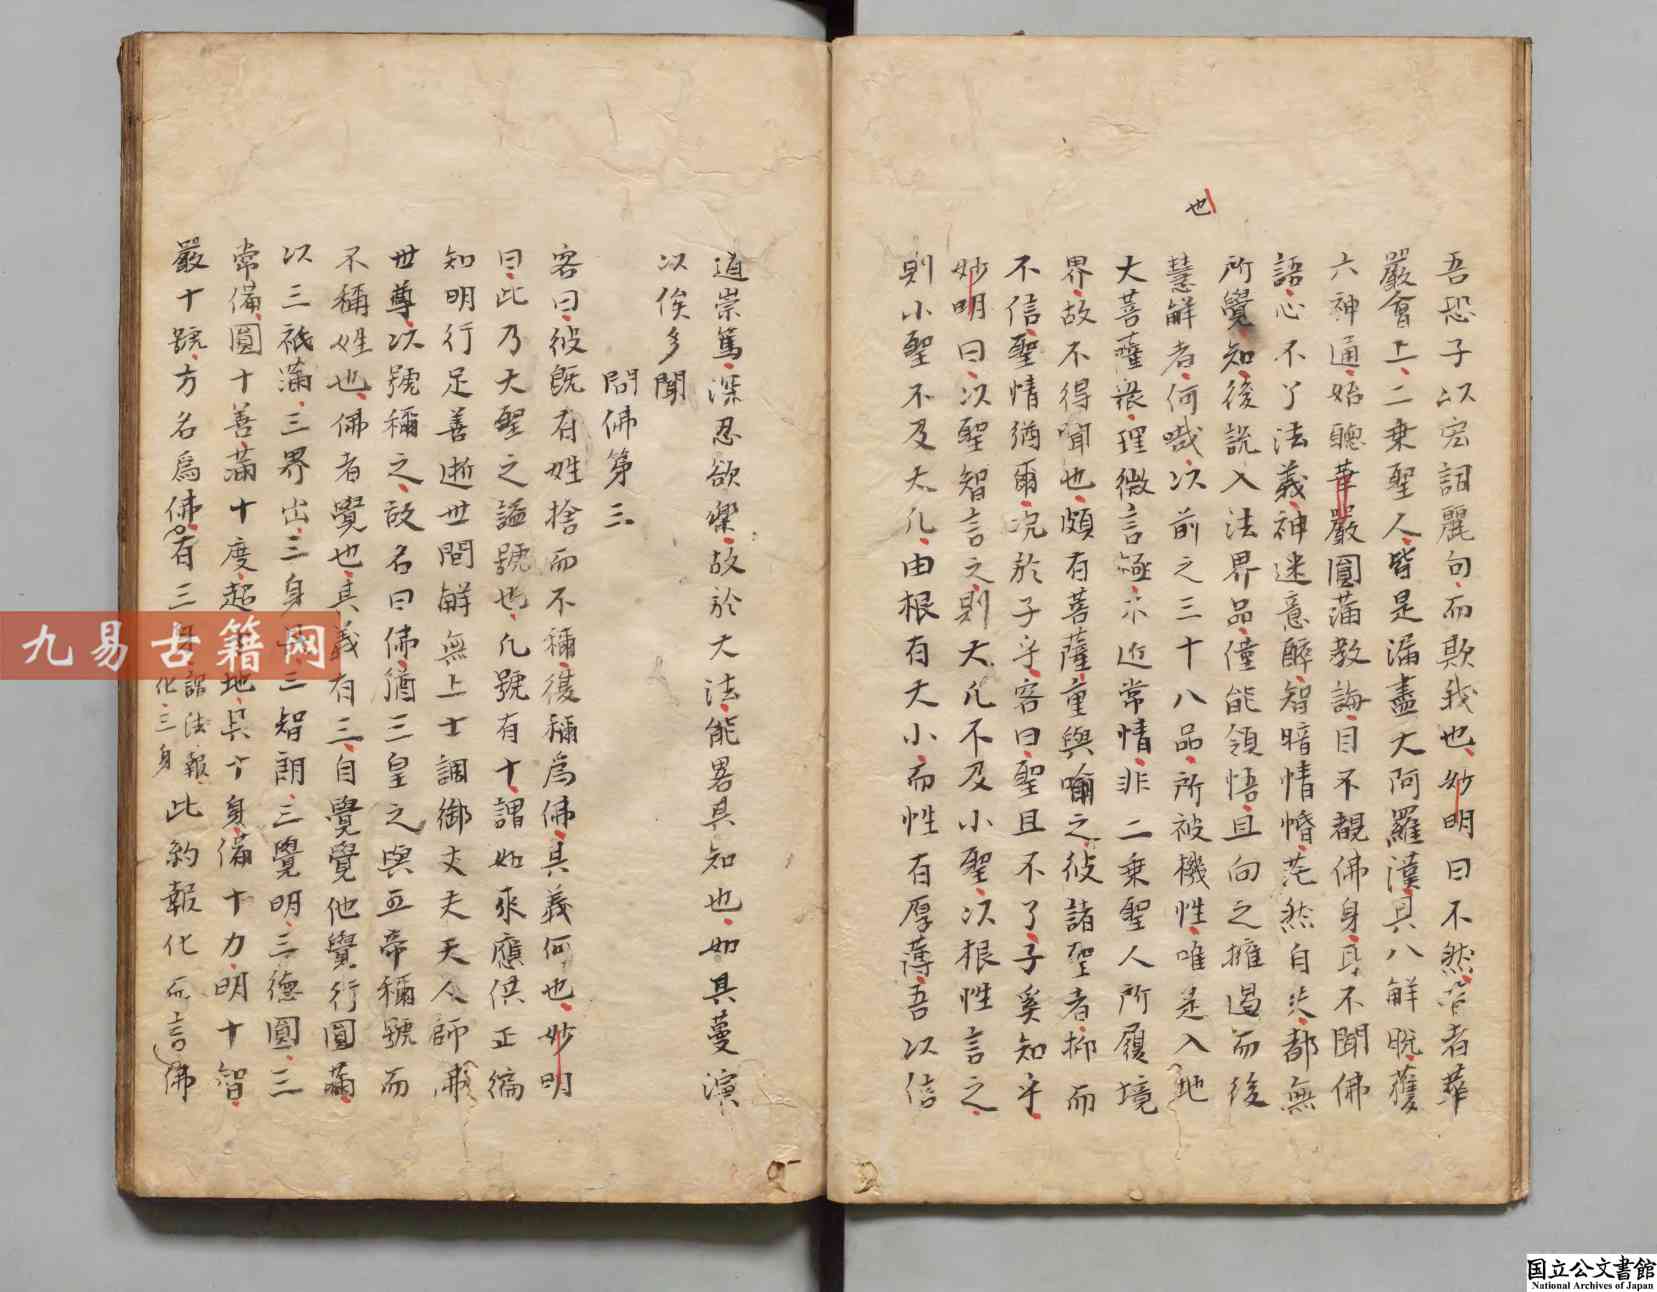 也
吾恐子以宏詞麗句而欺我也妙明曰不然昔者華
嚴會上二乗聖人皆是漏盡大阿羅漢具八解脱獲
六神通始聽華嚴圓滿教誨目不覩佛身耳不聞佛
語心不了法義神迷意醉智暗情惛茫然自失都無
所覺知後説入法界品僅能領悟且向之擁遏而後
慧解者何哉以前之三十八品所被機性唯是入地
大菩薩衆理微言極不近常情非二乗聖人所履境
界故不得聞也頗有菩薩重與喻之彼諸聖者抑而
不信聖情猶爾况於子乎客曰聖且不了子奚知乎
妙明曰以聖智言之則大凡不及小聖以根性言之
則小聖不及大凡由根有大小而性有厚薄吾以信
道崇篤深忍欲樂故於大法能畧具知也如具蔓演
以俟多聞
問佛第三
客曰彼既有姓捨而不稱復稱爲佛其義何也妙明
曰此乃大聖之謚號也凡號有十謂如來應供正徧
知明行足善逝世間解無上士調御丈夫天人師佛
世尊以號稱之故名曰佛猶三皇之與五帝稱號而
不稱姓也佛者覺也其義有三自覺覺他覺行圓滿
以三祇滿三界出三身三智朗三覺明三德圓三
常備圓十善滿十度超地具十身備十力明十智
嚴十號方名爲佛有三身謂法報化三身此約報化而言佛
九易古籍网
国立公文書館
National Archives of Japan